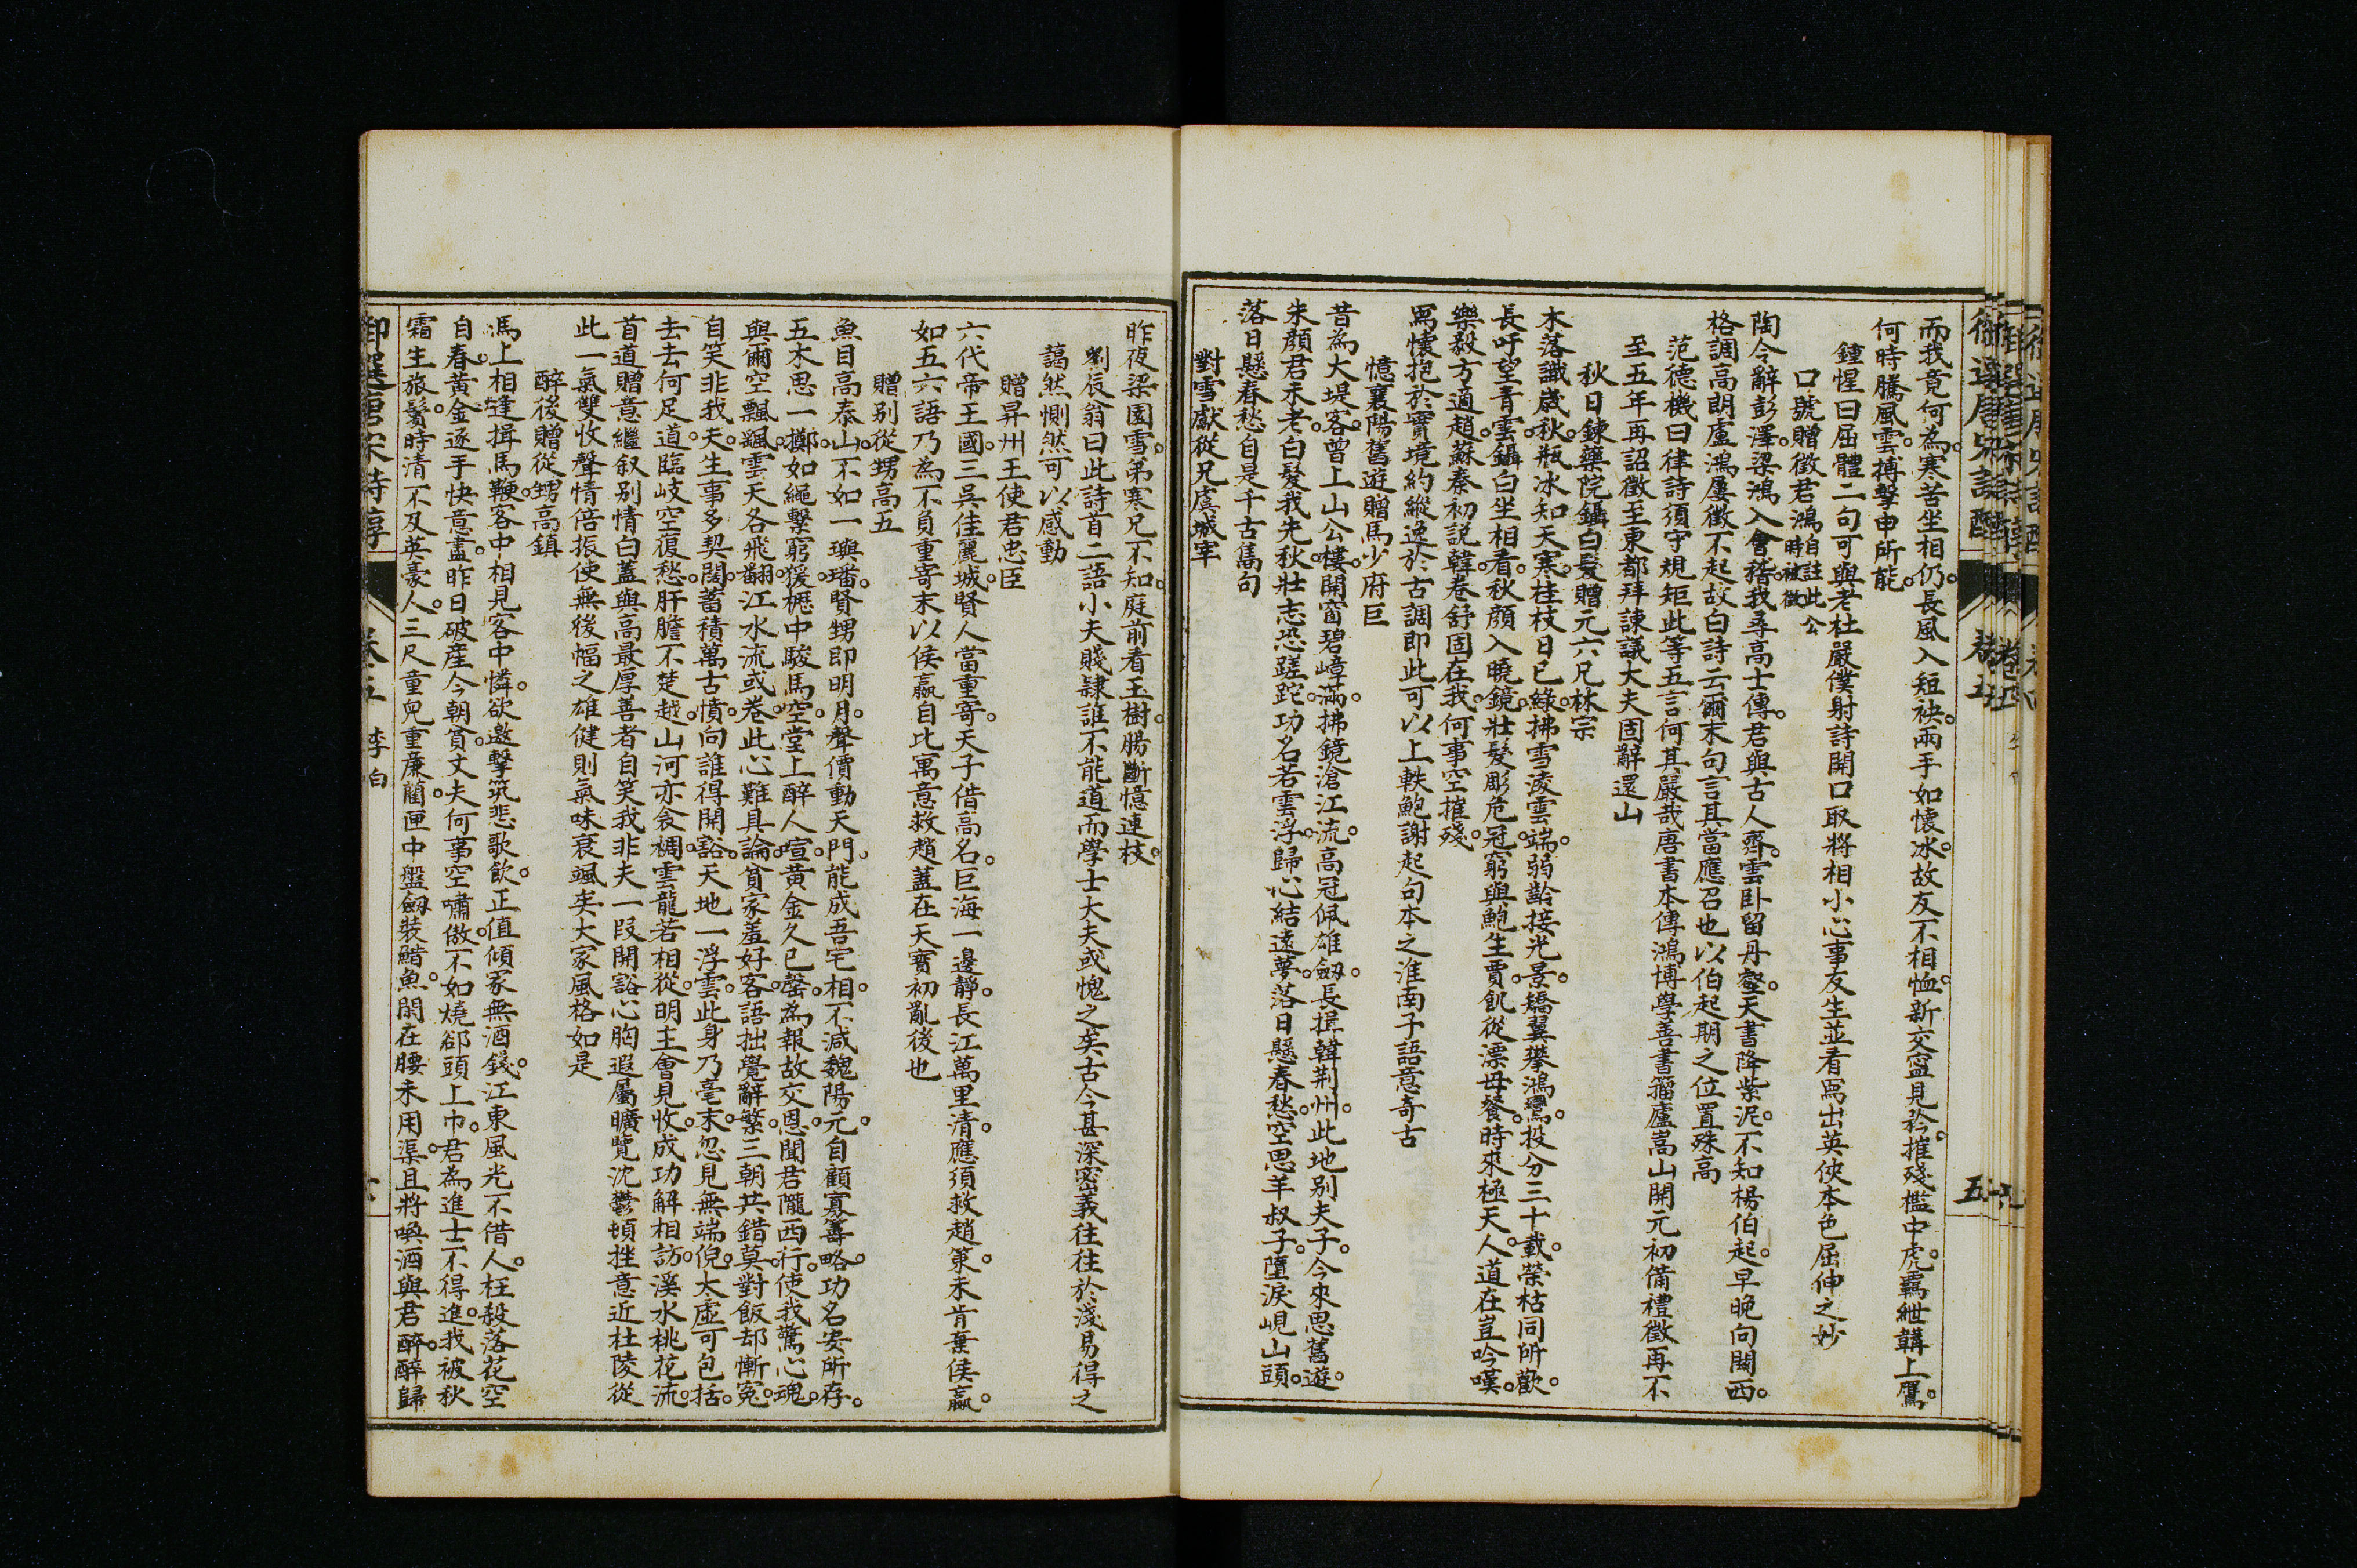 而我竟何為。寒苦坐相仍。長風入短袂。兩手如懷冰。故友不相恤。新交寧見矜。摧殘檻中虎。羈紲韝上鷹。
何時騰風雲。搏擊申所能。
鍾惺曰屈體二句可與老杜嚴僕射詩開口取將相小心事友生並看寫出英俠本色屈伸之妙
口號贈徵君鴻自註此公時被徵
陶令辭彭澤。梁鴻入會稽。我尋高士傳。君與古人齊。雲卧留丹壑。天書降紫泥。不知楊伯起。早晚向關西。
格調高朗盧鴻屢徵不起故白詩云爾末句言其當應召也以伯起期之位置殊高
范德機曰律詩須守規矩此等五言何其嚴哉唐書本傳鴻博學善書籀廬嵩山開元初備禮徵再不
至五年再詔徵至東都拜諫議大夫固辭還山
秋日鍊藥院鑷白髮贈元六兄林宗
木落識歲秋。瓶冰知天寒。桂枝日已綠。拂雪凌雲端。弱齡接光景。矯翼攀鴻鸞。投分三十載。榮枯同所歡。
長吁望青雲。鑷白坐相看。秋顏入曉鏡。壯髮彫危冠。窮與鮑生賈。飢從漂母餐。時來極天人。道在豈吟嘆。
樂毅方適趙。蘇秦初說韓。卷舒固在我。何事空摧殘。
寫懷抱於實境約縱逸於古調即此可以上軼鮑謝起句本之淮南子語意奇古
憶襄陽舊遊贈馬少府巨
昔為大堤客。曾上山公樓。開窗碧嶂滿。拂鏡滄江流。高冠佩雄劒。長揖韓荊州。此地別夫子。今來思舊遊。
朱顏君未老。白髮我先秋。壯志恐蹉跎。功名若雲浮。歸心結遠夢。落日懸春愁。空思羊叔子。墮淚峴山頭。
落日懸春愁自是千古雋句
對雪獻從兄虞城宰
昨夜梁園雪。弟寒兄不知。庭前看玉樹。腸斷憶連枝。
劉辰翁曰此詩首二語小夫賤隸誰不能道而學士大夫或愧之矣古今甚深密義往往於淺易得之
藹然惻然可以感動
贈昇州王使君忠臣
六代帝王國。三吳佳麗城。賢人當重寄。天子借高名。巨海一邊靜。長江萬里清。應須救趙策。未肯棄侯嬴。
如五六語乃為不負重寄末以侯嬴自比寓意救趙蓋在天寶初亂後也
贈別從甥高五
魚目高泰山。不如一璵璠。賢甥即明月。聲價動天門。能成吾宅相。不減魏陽元。自顧寡籌略。功名安所存。
五木思一擲。如繩繫窮猨。櫪中駿馬空。堂上醉人喧。黃金久已罄。為報故交恩。聞君隴西行。使我驚心魂。
與爾空飄颻。雲天各飛翻。江水流或卷。此心難具論。貧家羞好客。語拙覺辭繁。三朝共錯莫。對飯却慚冤。
自笑非我夫。生事多契闊。蓄積萬古憤。向誰得開豁。天地一浮雲。此身乃毫末。忽見無端倪。太虛可包括。
去去何足道。臨岐空復愁。肝膽不楚越。山河亦衾裯。雲龍若相從。明主會見收。成功解相訪。溪水桃花流。
首道贈意繼叙別情白蓋與高最厚善者自笑我非夫一段開豁心胸遐屬曠覽沈鬱頓挫意近杜陵從
此一氣雙收聲情倍振使無後幅之雄健則氣味衰颯矣大家風格如是
醉後贈從甥高鎮
馬上相逢揖馬鞭。客中相見客中憐。欲邀擊筑悲歌飲。正值傾家無酒錢。江東風光不借人。枉殺落花空
自春。黃金逐手快意盡。昨日破産今朝貧。丈夫何事空嘯傲。不如燒卻頭上巾。君為進士不得進。我被秋
霜生旅鬢。時清不及英豪人。三尺童兒重廉藺。匣中盤劒裝䱜魚。閑在腰未用渠。且將喚酒與君醉。醉歸
御選唐宋詩醇 卷五 李白